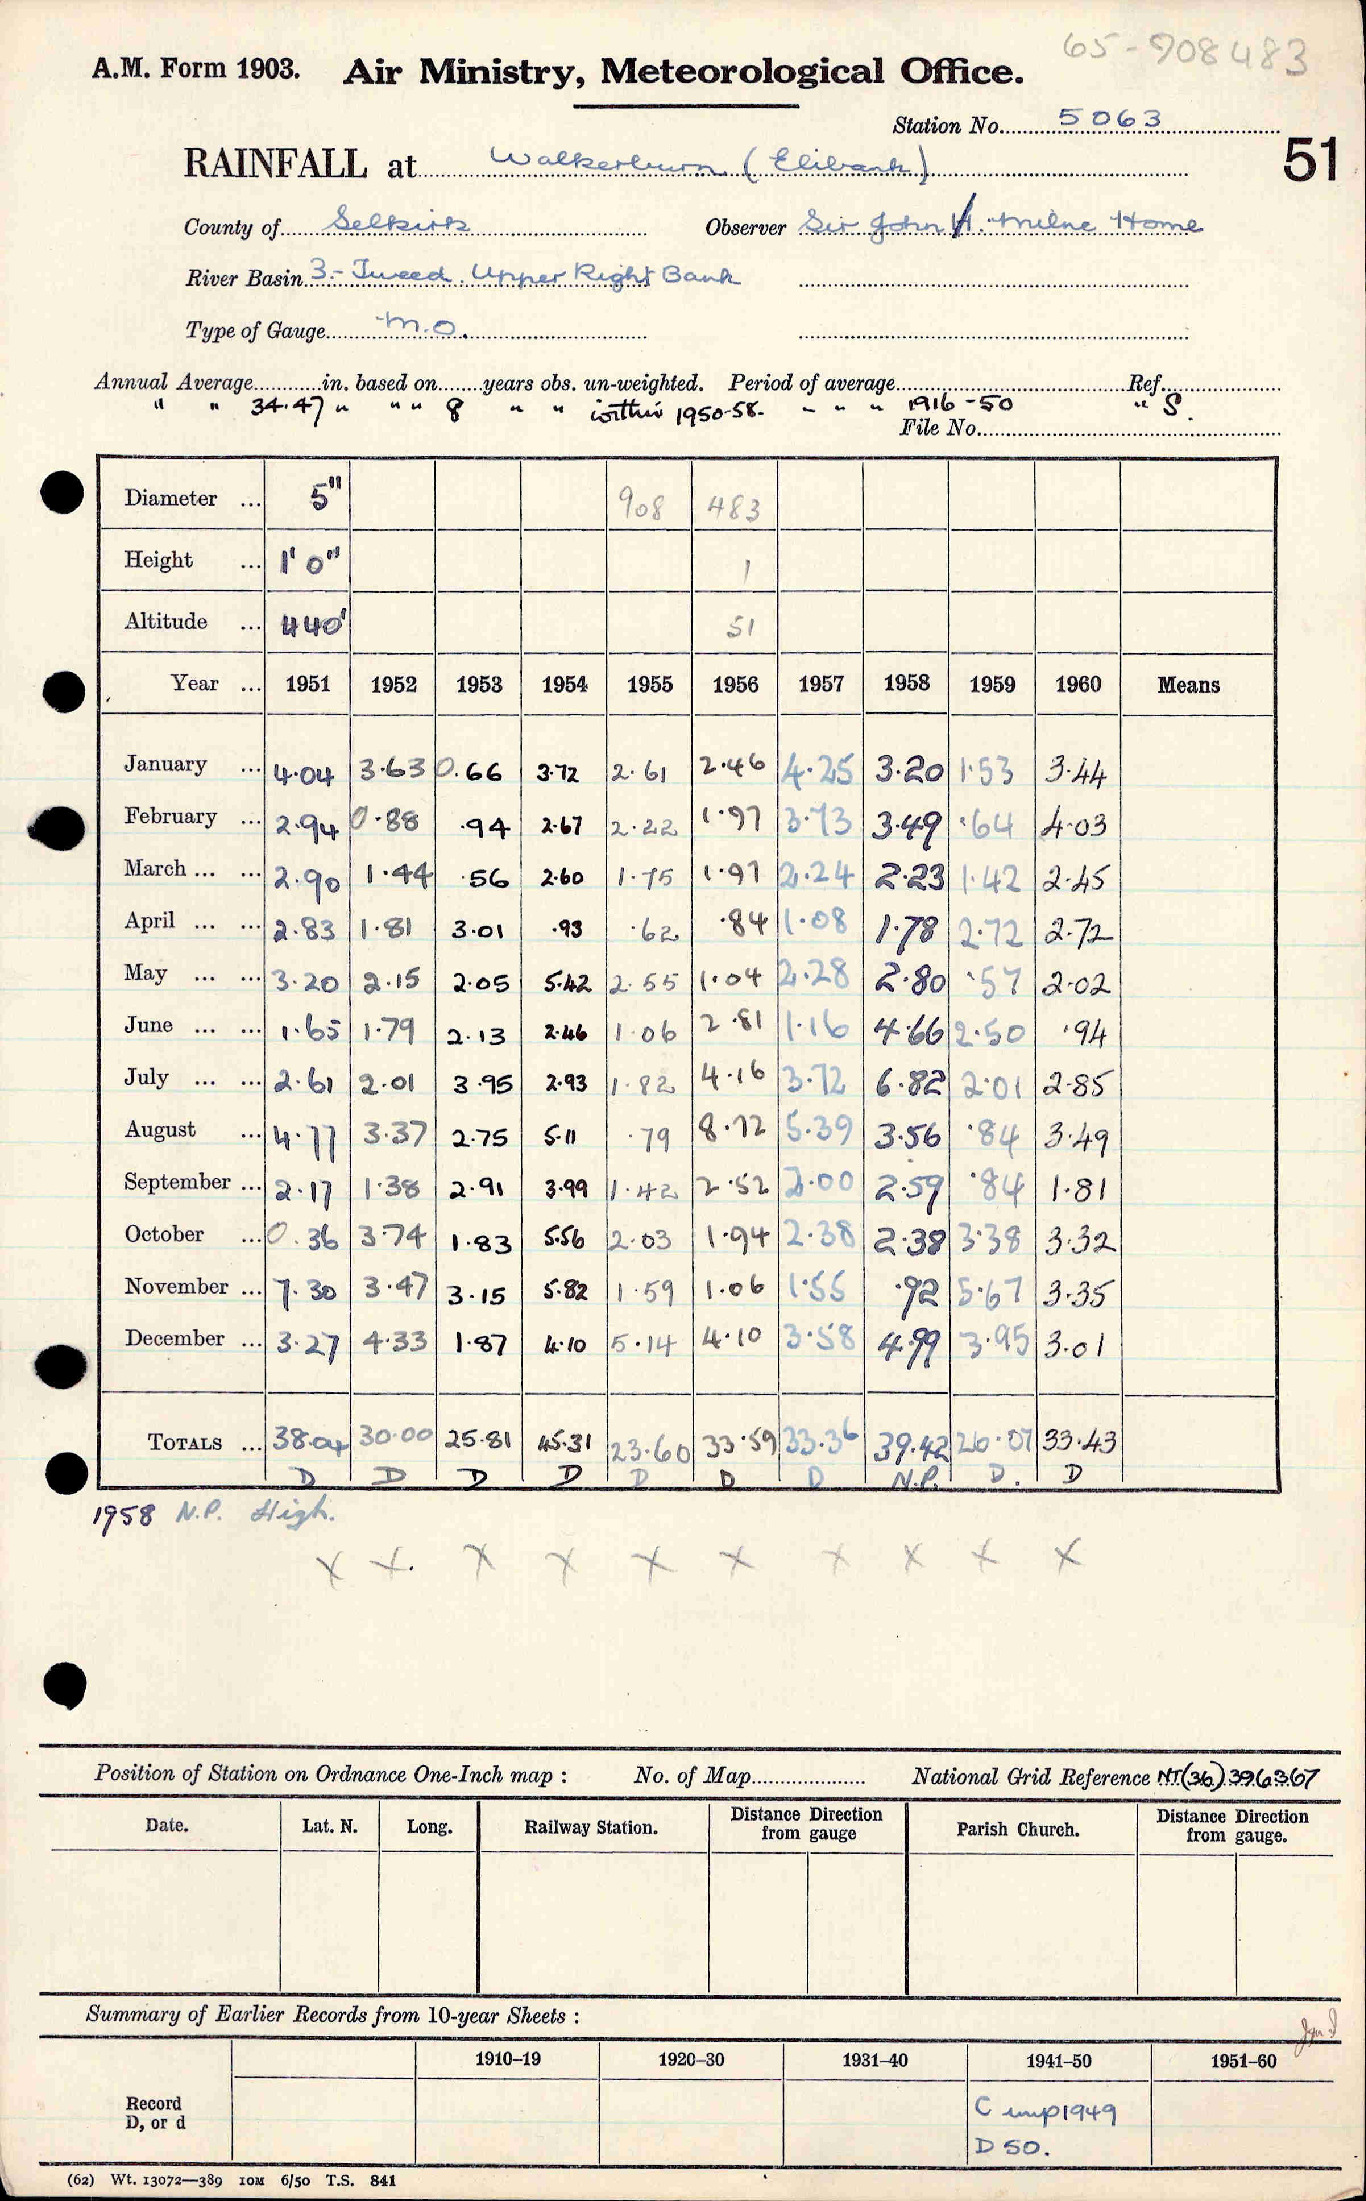 65-908483
A.M. Form 1903. Air Ministry, Meteorological Office.
Station No. 5063
RAINFALL at Walkerburn (Elibank) 51
County of Selkirk Observer Sir John H. Milne Home
River Basin 3.- Tweed. Upper Right Bank
Type of Gauge M.O.
Annual Average in. based on years obs. un-weighted. Period of average Ref.
" " 34.47 " " " 8 " " within 1950-58. - " " " 1916-50 " S.
File No.
Diameter ... 5" 908 483
Height ... 1' 0" 1
Altitude ... 440' 51
Year ... 1951 1952 1953 1954 1955 1956 1957 1958 1959 1960 Means
January ... 4.04 3.63 0.66 3.72 2.61 2.46 4.25 3.20 1.53 3.44
February ... 2.94 0.88 .94 2.67 2.22 1.97 3.73 3.49 .64 4.03
March ... ... 2.90 1.44 .56 2.60 1.75 1.97 2.24 2.23 1.42 2.45
April ... ... 2.83 1.81 3.01 .93 .62 .84 1.08 1.78 2.72 2.72
May ... ... 3.20 2.15 2.05 5.42 2.55 1.04 2.28 2.80 .57 2.02
June ... ... 1.65 1.79 2.13 2.46 1.06 2.81 1.16 4.66 2.50 .94
July ... ... 2.61 2.01 3.95 2.93 1.82 4.16 3.72 6.82 2.01 2.85
August ... 4.77 3.37 2.75 5.11 .79 8.72 5.39 3.56 .84 3.49
September ... 2.17 1.38 2.91 3.99 1.42 2.52 2.00 2.59 .84 1.81
October ... 0.36 3.74 1.83 5.56 2.03 1.94 2.38 2.38 3.38 3.32
November ... 7.30 3.47 3.15 5.82 1.59 1.06 1.55 .92 5.67 3.35
December ... 3.27 4.33 1.87 4.10 5.14 4.10 3.58 4.99 3.95 3.01
TOTALS ... 38.04 30.00 25.81 45.31 23.60 33.59 33.36 39.42 26.07 33.43
D D D D D D D N.P. D. D
1958 N.P. High.
X X. X X X X X X X X
Position of Station on Ordnance One-Inch map : No. of Map National Grid Reference NT(36)396367
Date. Lat. N. Long. Railway Station. Distance Direction from gauge Parish Church. Distance Direction from gauge.
Summary of Earlier Records from 10-year Sheets :
1910–19 1920–30 1931–40 1941–50 1951–60
Record D, or d C imp 1949
D 50.
(62) Wt. 13072—389 10M 6/50 T.S. 841